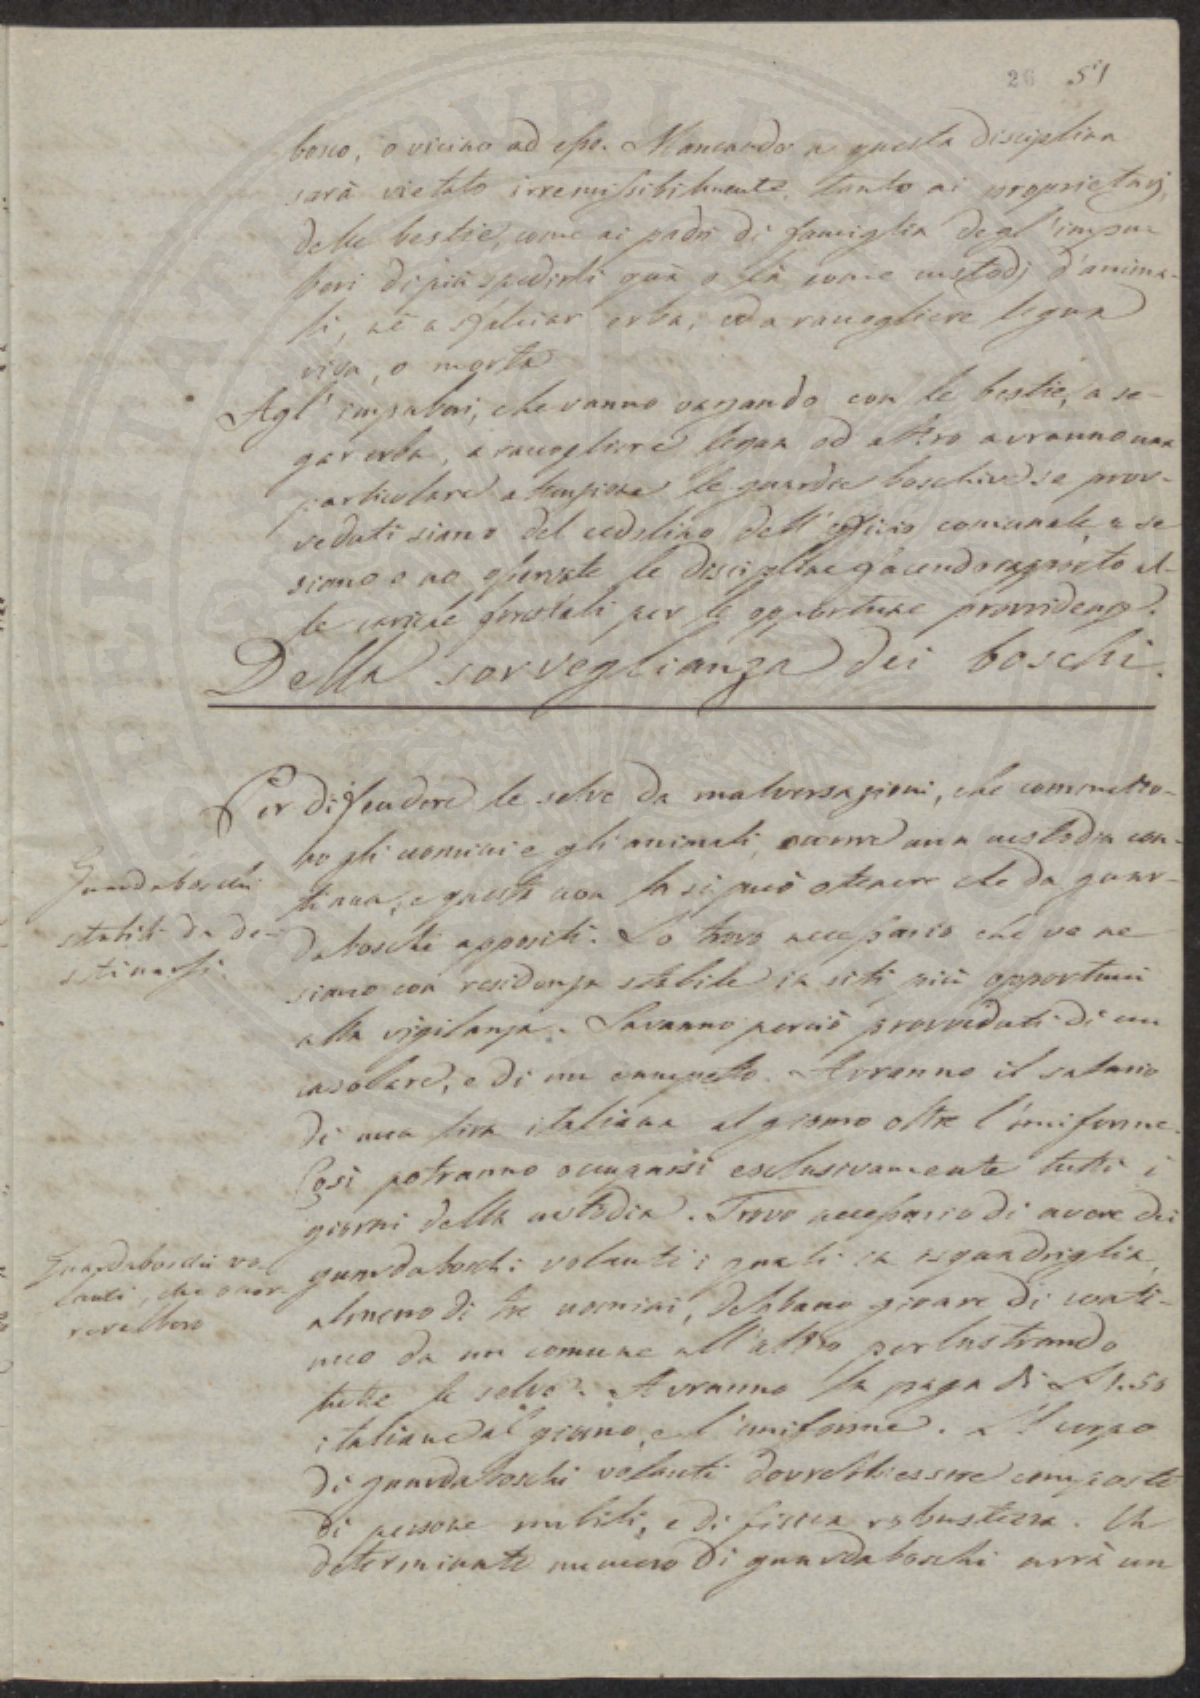 26 51
bosco, o vicino ad esso. Mancando a questa disciplina
sarà vietato irremissibilmente, tanto ai proprietarj
delle bestie, come ai padri di famiglia degl'impu-
beri di più spedirli quà o là come custodj d'anima-
li, nè a sfalciar erba, od a raccogliere legna
viva, o morta
Agl'impuberi, che vanno vagando con le bestie, a se-
gar erba, a raccogliere legna od altro avranno una
particolare attenzione le guardie boschive se prov-
veduti siano del cedolino dell'officio comunale, e se
siano o no osservate le discipline facendo rapporto al-
le cariche forestali per le opportune providenze.
Della sorveglianza dei boschi.
Per difendere le selve da malversazioni, che commetto-
no gli uomini e gli animali, occorre una custodia con-
tinua, e questa non la si può ottenere che da guar-
daboschi appositi. Io trovo necessario che ve ne
siano con residenza stabile in siti più opportuni
alla vigilanza. Saranno perciò provveduti di un
casolare, e di un campetto. Avranno il salario
di una lira italiana al giorno oltre l'uniforme.
Così potranno occuparsi esclusivamente tutti i
giorni della custodia. Trovo necessario di avere dei
guardaboschi volanti i quali in isquadriglia,
almeno di tre uomini, debbano girare di conti-
nuo da un comune all'altro perlustrando
tutte le selve. Avranno la paga di L 1.50
italiane al giorno, e l'uniforme. Il corpo
di guardaboschi volanti dovrebbe essere composto
di persone nubili, e di fisica robustezza. Un
determinato numero di guardaboschi avrà un
Guardaboschi
stabili da de-
stinarsi
Guardaboschi vo-
lanti, che occor-
rerebbero